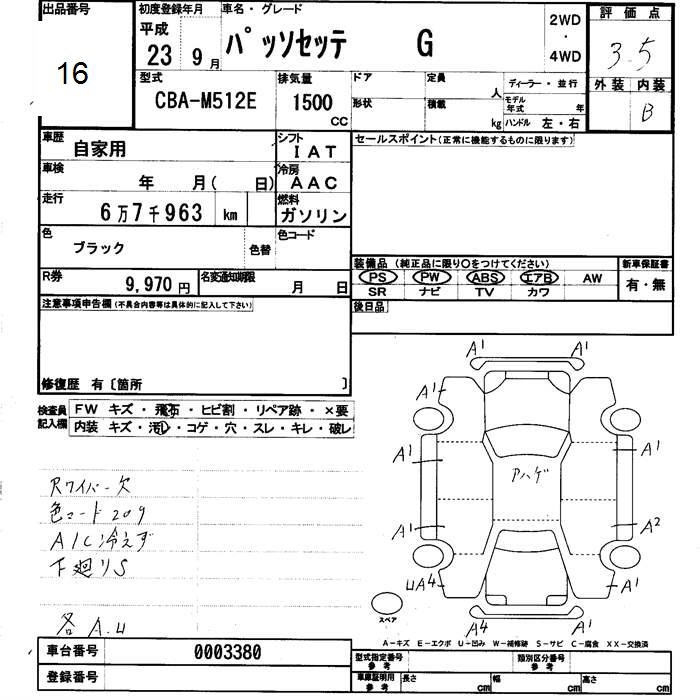 出品番号
16
初度登録年月
平成
23 9月
車名・グレード
パッソセッテ G
2WD
・
4WD
評価点
3.5
外装 内装
B
型式
CBA-M512E
排気量
1500
cc
ドア
定員
人
形状
積載
kg
ディーラー・並行
モデル年式 年
ハンドル 左・右
車歴
自家用
シフト
IAT
車検
年 月( 日)
冷房
AAC
走行
6万7千963 km
燃料
ガソリン
色
ブラック
色替
色コード
R券
9,970 円
名変通知期限
月 日
セールスポイント(正常に機能するものに限ります)
装備品 (純正品に限り○をつけてください)
PS PW ABS エアB AW
SR ナビ TV カワ
新車保証書
有・無
後日品
注意事項申告欄(不具合内容等は具体的に記入して下さい)
修復歴 有〔箇所 〕
検査員記入欄
FW キズ・飛石・ヒビ割・リペア跡・×要
内装 キズ・汚レ・コゲ・穴・スレ・キレ・破レ
Rワイパー欠
色コード209
A/C冷えず
下廻りS
各A.U
A1 A1
A1 A1
A1 A1
アハゲ
A1 A2
UA4 A1
A4 A1
スペア
A-キズ E-エクボ U-凹み W-補修跡 S-サビ C-腐食 XX-交換済
車台番号
0003380
登録番号
型式指定番号
参考
類別区分番号
参考
車庫証明用
参考
長さ cm
幅 cm
高さ cm